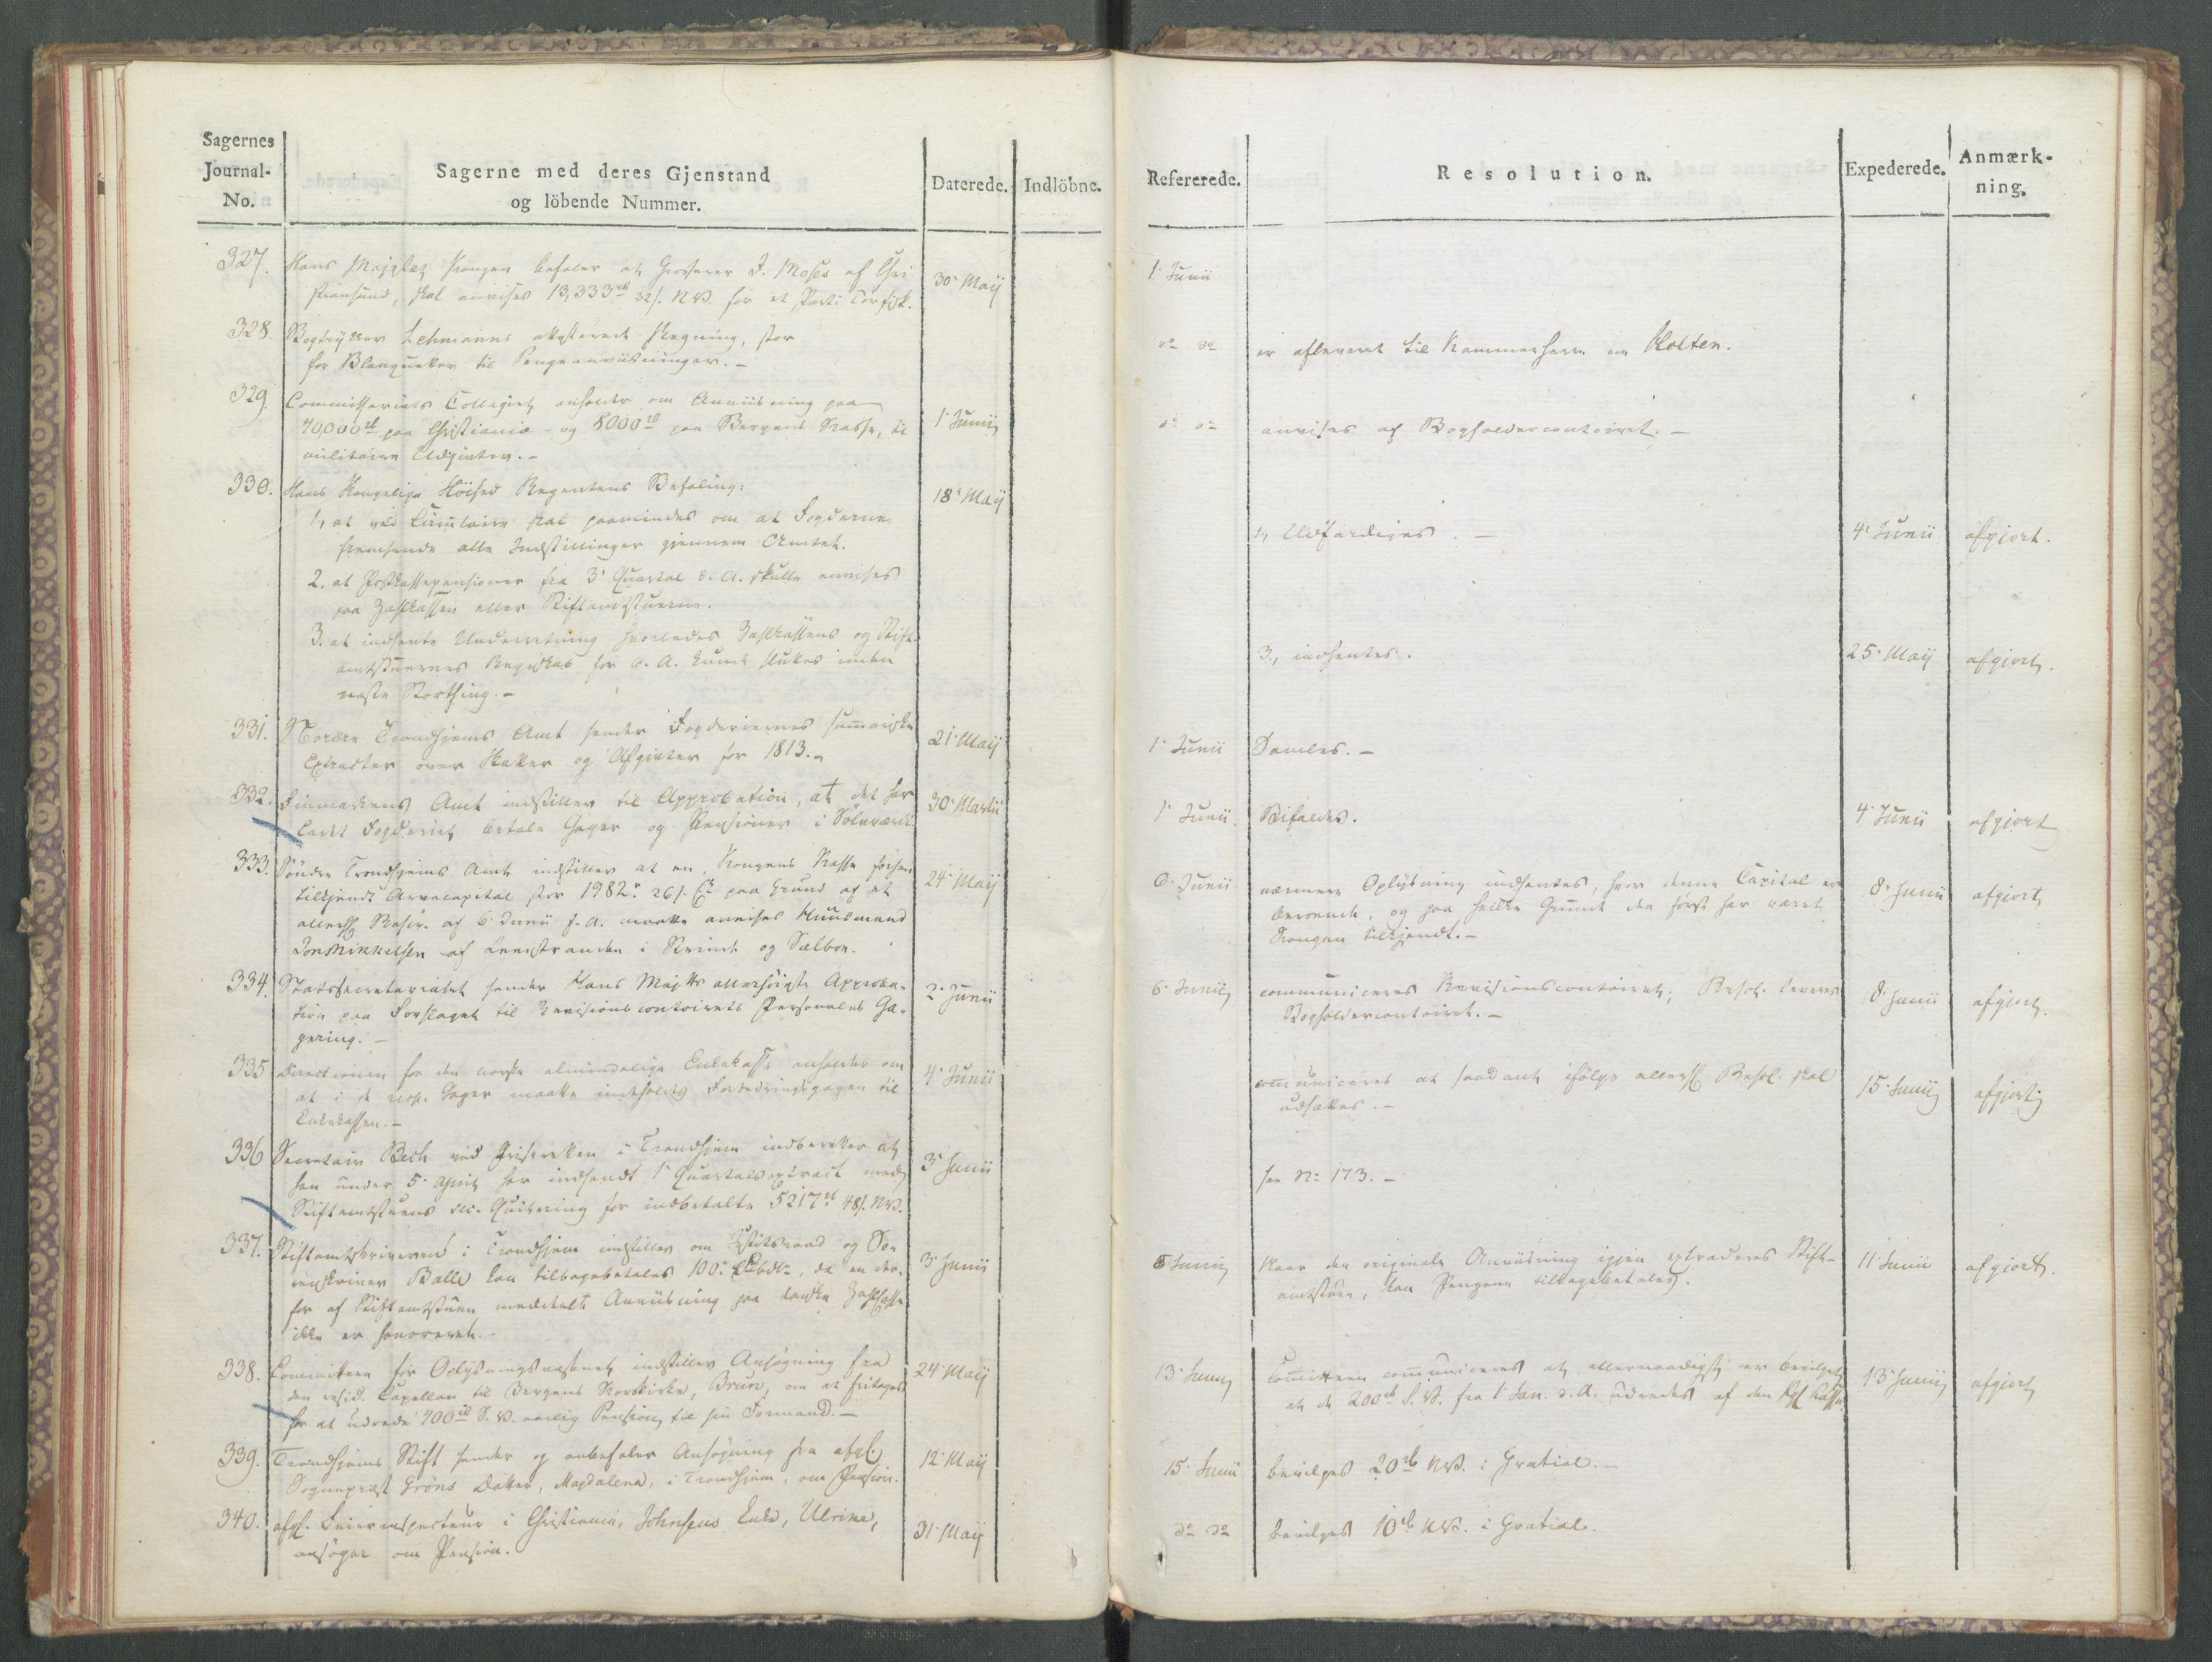 Sagernes
Journal-
No.
Sagerne med deres Gjenstand
og löbende Nummer.
Daterede.
Indlöbne.
Refererede.
Resolution.
Expederede.
Anmærk-
ning.
327. Hans Majestæt Kongen befaler at Grosserer J. Moses af Chri-
stiansund, skal anvises 13,333 rb 32 s. N.V. for et Parti Tørfisk.
30 Maij
1 Junii
328. Bogtrykker Lehmanns attesterede Regning, stor
for Blanquetter til Pengeanviisninger. -
do do
er afleveret til Kammerherre von Holten.
329. Commissariats Collegiet anholder om Anviisning paa
40,000 rb paa Christiania - og 8000 rb paa Bergens Kasse, til
militaire Udgivter. -
1 Junii
do do
anvises af Bogholdercontoiret. -
330. Hans Kongelige Höihed Regentens Befaling:
18 Maij
1, at ved Circulaire skal paamindes om at Fogderne
fremsende alle Indstillinger gjennem Amtet.
1, Udfærdiges. -
4 Junii
afgjort.
2. at Postkassepensioner fra 3 Quartal d. A. skulle anvises
paa Zahlkassen eller Stiftamtstuerne.
3. at indhente Underretning hvorledes Zahlkassens og Stift-
amtstuernes Regnskab for d. A. kunde sluttes inden
næste Storthing. -
3., indhentes.
25 Maij
afgjort.
331. Nordre Trondhjems Amt sender Fogderiernes summariske
Extracter over Skatter og Afgivter for 1813. -
21 Maij
1 Junii
Samles. -
332. Finmarkens Amt indstiller til Approbation, at det har
ladet Fogderiet betale Gager og Pensioner i Sölvværdi.
30 Martii
1 Junii.
Bifaldes.
4 Junii
afgjort
333. Söndre Trondhjems Amt indstiller at en, Kongens Kasse forhen
tilkjendt Arvecapital stor 1982 r 26 s. paa Grund af et
allerh. Rescr. af 6 Junii f. A. maatte anvises Huusmand
Jon Mikkelsen af i og Sælboe.
24 Maij
6 Junii
nærmere Oplysning indhentes, hvor denne Capital er
beroende, og paa hvilken Grund den först har været
Kongen tilkjendt. -
8 Junii
afgjort
334. Statssecretariatet sender Hans Majts allerhöieste Approba-
tion paa Forslaget til Revisionscontoirets Personales Ga-
gering. -
2 Junii
6 Junii
communiceres Revisionscontoiret; Resol. leveres
Bogholdercontoiret. -
8 Junii
afgjort.
335 Directionen for den norske almindelige Enkekasse anholder om
at i de resp. Gager maatte indeholdes Forbedringsgagen til
Enkekassen. -
4 Junii
communiceres at saadant ifölge allerh. Resol. skal
udsættes. -
15 Junii
afgjort
336 Secretair Bech ved Priseretten i Trondhjem indberetter at
han under 5 April har indsendt 1 Quartalsextract med
Stiftamtstuens Quittering for indbetalte 5217 rb 48 s. N.V.
3 Junii
see No 173. -
337. Stiftamtskriveren i Trondhjem indstiller om Justitsraad og So-
renskriver Balle kan tilbagebetales 100 , da en der-
for af Stiftamtstuen meddeelt Anviisning paa danske Zahlkasse
ikke er honoreret. -
3 Junii
8 Junii
Naar den originale Anviisning igjen extraderes Stift-
amtstuen, kan Pengene tilbagebetales.
11 Junii
afgjort.
338. Committeen for Oplysningsvæsenet indstiller Ansögning fra
den resid. Capellan til Bergens Korskirke, Brun, om at fritages
for at udrede 400 rb S.V. aarlig Pension til sin Formand. -
24 Maij
13 Junii
Committeen communiceres at allernaadigst er bevilget
at de 200 rb S.V. fra 1 Jan. d. A. udredes af den Kgl Kasse.
13 Junii
afgjort
339. Trondhjems Stift sender og anbefaler Ansögning fra afgl.
Sognepræst Gröns Datter, Magdalena, i Trondhjem, om Pension.
12 Maij
15 Junii
bevilges 20 rb N.V. i Gratial. -
340. afgl. Feierinspecteur i Christiania, Johnsens Enke, Ulrine,
ansöger om Pension.
31 Maij
do do
bevilges 10 rb N.V. i Gratial.